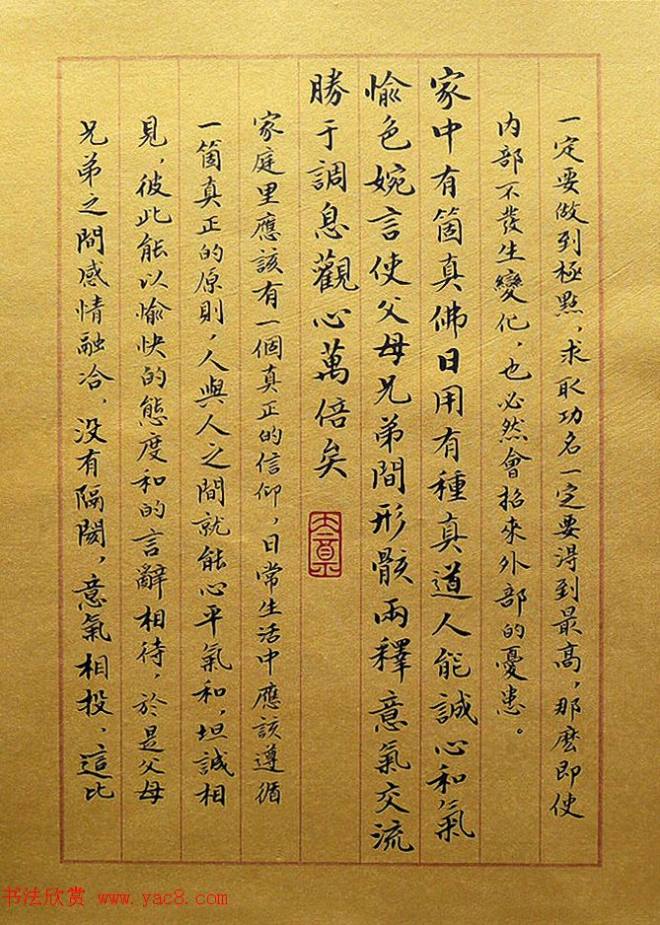 一定要做到極點，求取功名一定要得到最高，那麽即使
内部不發生變化，也必然會招來外部的憂患。
家中有箇真佛日用有種真道人能誠心和氣
愉色婉言使父母兄弟間形骸兩釋意氣交流
勝于調息觀心萬倍矣
家庭里應該有一個真正的信仰，日常生活中應該遵循
一箇真正的原則，人與人之間就能心平氣和，坦誠相
見，彼此能以愉快的態度和的言辭相待，於是父母
兄弟之間感情融洽，没有隔閡，意氣相投，這比
书法欣赏 www.yac8.com